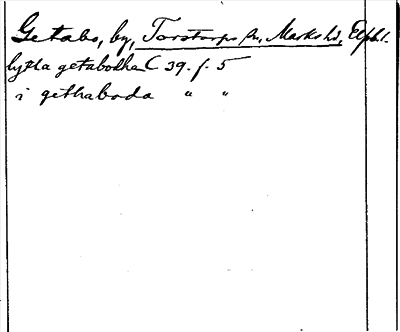 Getabo, by, Torstorps sn, Marks hd, Elfsbl.
lytla getabodha C 39. f. 5
i gethaboda " "